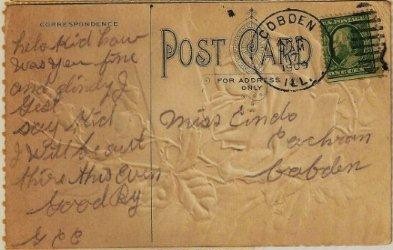 CORRESPONDENCE
helo Kid how
was you fine
and dindy I
Gess
say Kid
I will be out
thire this Even
Good By
POST CARD
FOR ADDRESS
ONLY
COBDEN
ILL.
Miss Linds
Cochran
Cobden